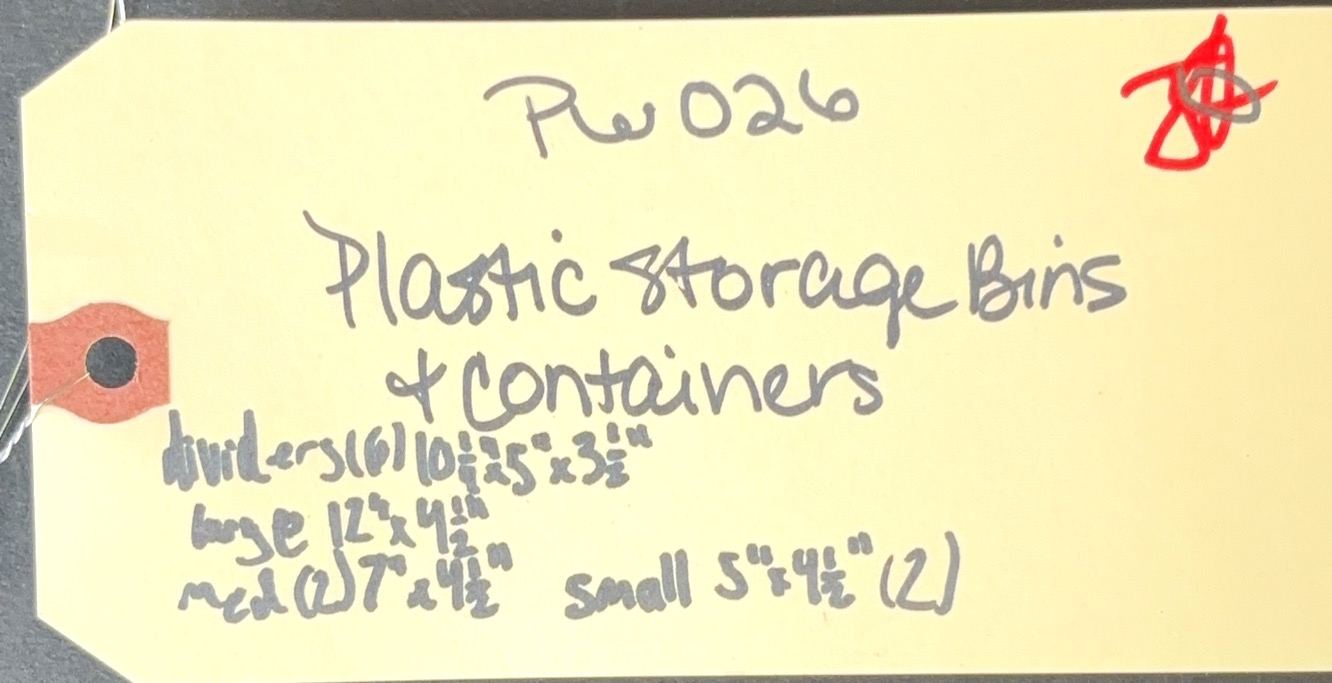 PW 026
Plastic Storage Bins
+ Containers
dividers (6) 10 1/4" x 5" x 3 1/2"
large 12" x 4 1/2"
med (2) 7" x 4 1/2" small 5" x 4 1/2" (2)